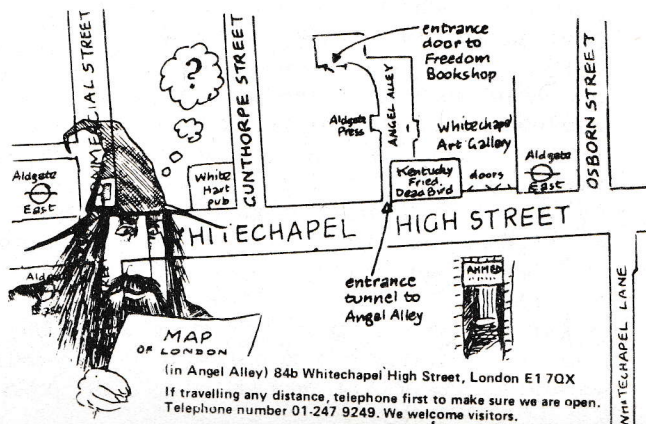 COMMERCIAL STREET
GUNTHORPE STREET
?
entrance
door to
Freedom
Bookshop
OSBORN STREET
ANGEL ALLEY
Aldgate
Press
Whitechapel
Art Gallery
Aldgate
East
White
Hart
pub
Kentucky
Fried
Dead Bird
doors
Aldgate
East
WHITECHAPEL HIGH STREET
Aldgate
East
entrance
tunnel to
Angel Alley
AHMED
WHITECHAPEL LANE
MAP
OF LONDON
(in Angel Alley) 84b Whitechapel High Street, London E1 7QX
If travelling any distance, telephone first to make sure we are open.
Telephone number 01-247 9249. We welcome visitors.